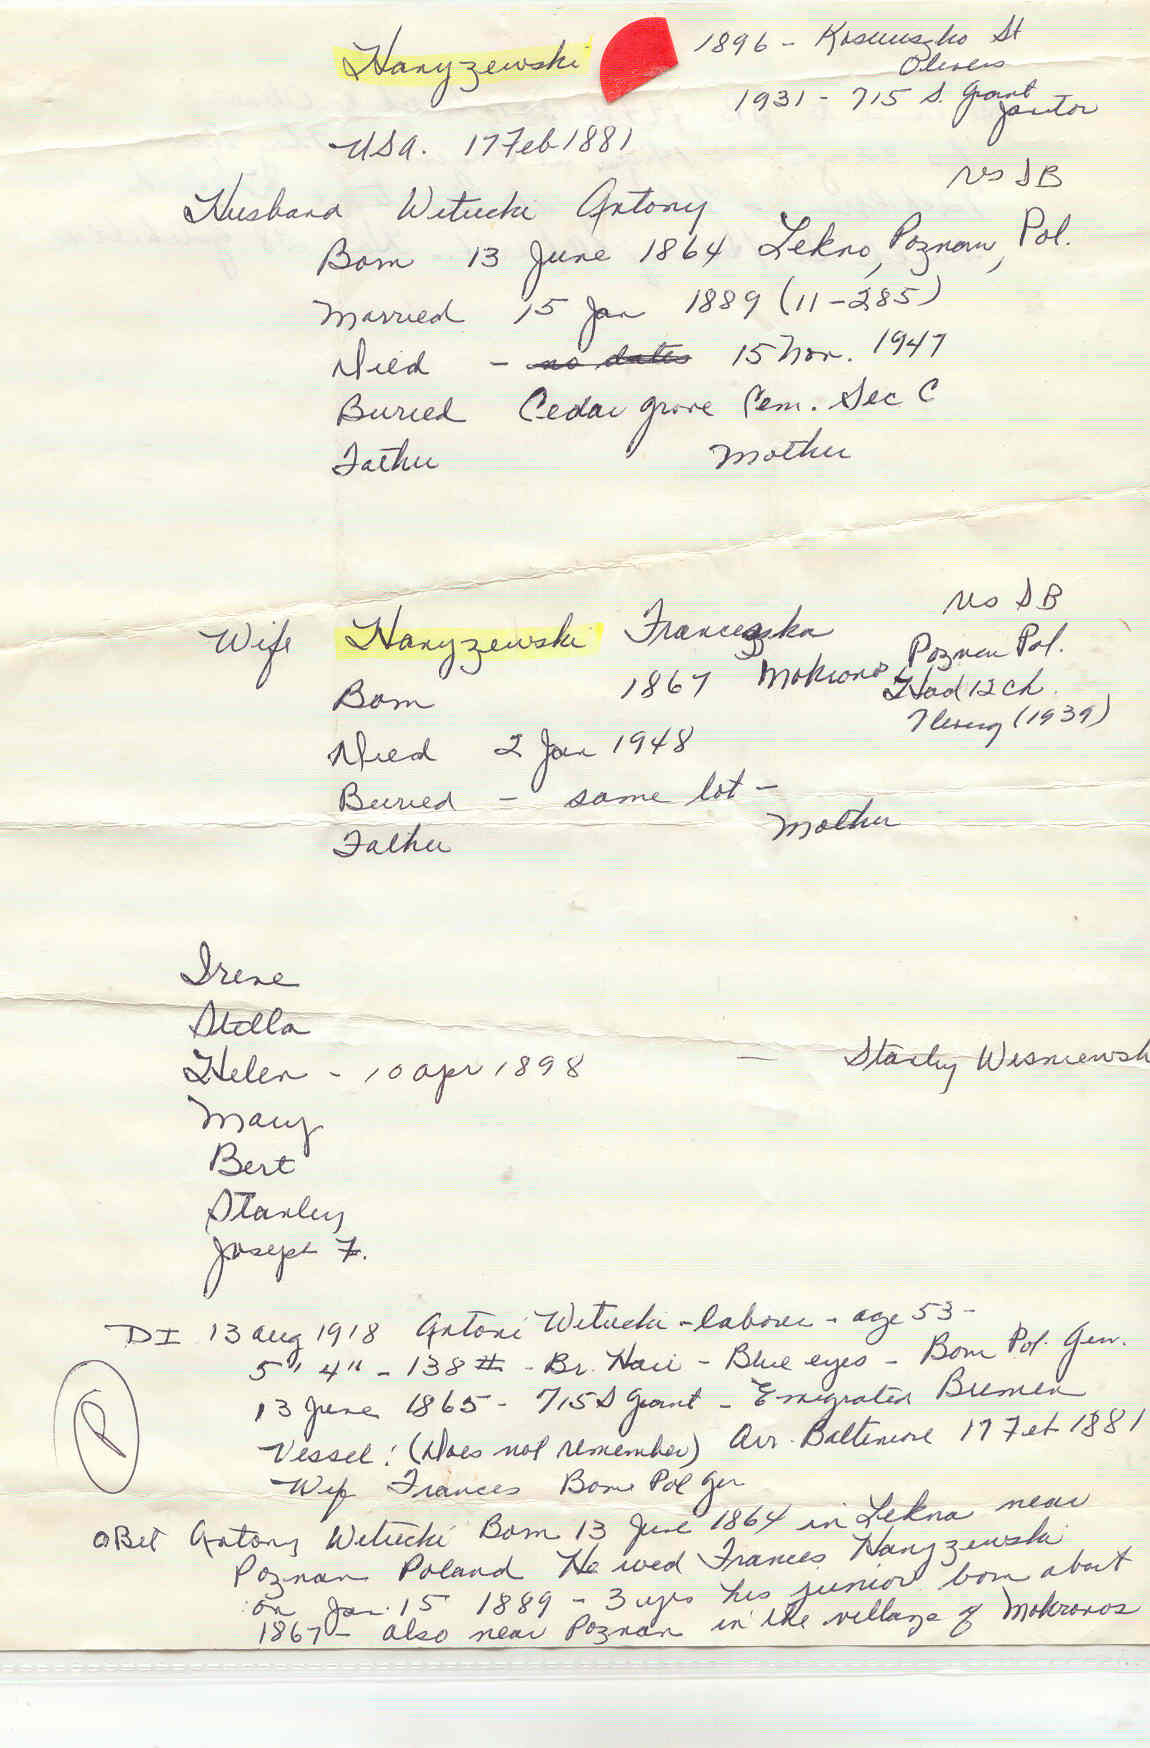 Hanyzewski 1896 - Kosciuszko St
Olivers
1931 - 715 S. Grant
Janitor
USA. 17 Feb 1881
res SB
Husband Witucki Antony
Born 13 June 1864 Lekno, Poznan, Pol.
Married 15 Jan 1889 (11-285)
Died - no dates 15 Nov. 1947
Buried Cedar Grove Cem. Sec C
Father Mother
res SB
Wife Hanyzewski Franceszka
Poznan Pol.
Born 1867 Mokronos
Had 12 ch.
7 living (1939)
Died 2 Jan 1948
Buried - same lot -
Father Mother
Irene
Stella
Helen - 10 Apr 1898 - Stanley Wisniewsk
Mary
Bert
Stanley
Joseph F.
DI 13 Aug 1918 Antoni Witucki - laborer - age 53 -
5" 4" - 138 # - Br. Hair - Blue eyes - Born Pol. Ger.
13 June 1865 - 715 S Grant - Emigrated Bremen
Vessel: (Does not remember) Arr. Baltimore 17 Feb 1881
Wife Frances Born Pol Ger
P
OBit Antony Witucki Born 13 June 1864 in Lekna near
Poznan Poland He wed Frances Hanyzewski
on Jan. 15 1889 - 3 yrs his junior born about
1867 - also near Poznan in the village of Mokronos